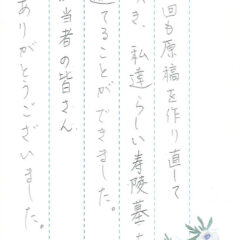 回も原稿を作り直して
き、私達らしい寿陵墓
てることができました。
当者の皆さん
ありがとうございました。